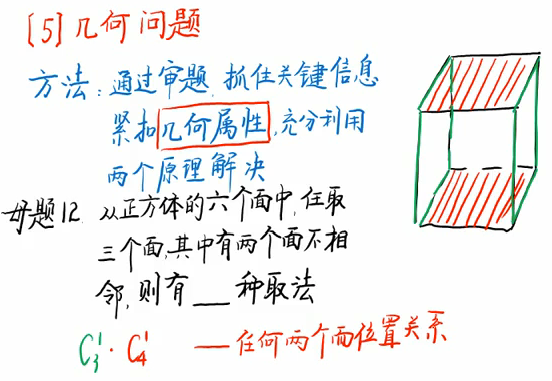 [5] 几何问题
方法：通过审题，抓住关键信息
紧扣几何属性，充分利用
两个原理解决
母题12. 从正方体的六个面中，任取
三个面，其中有两个面不相
邻，则有___种取法
C₃¹·C₄¹ —任何两个面位置关系